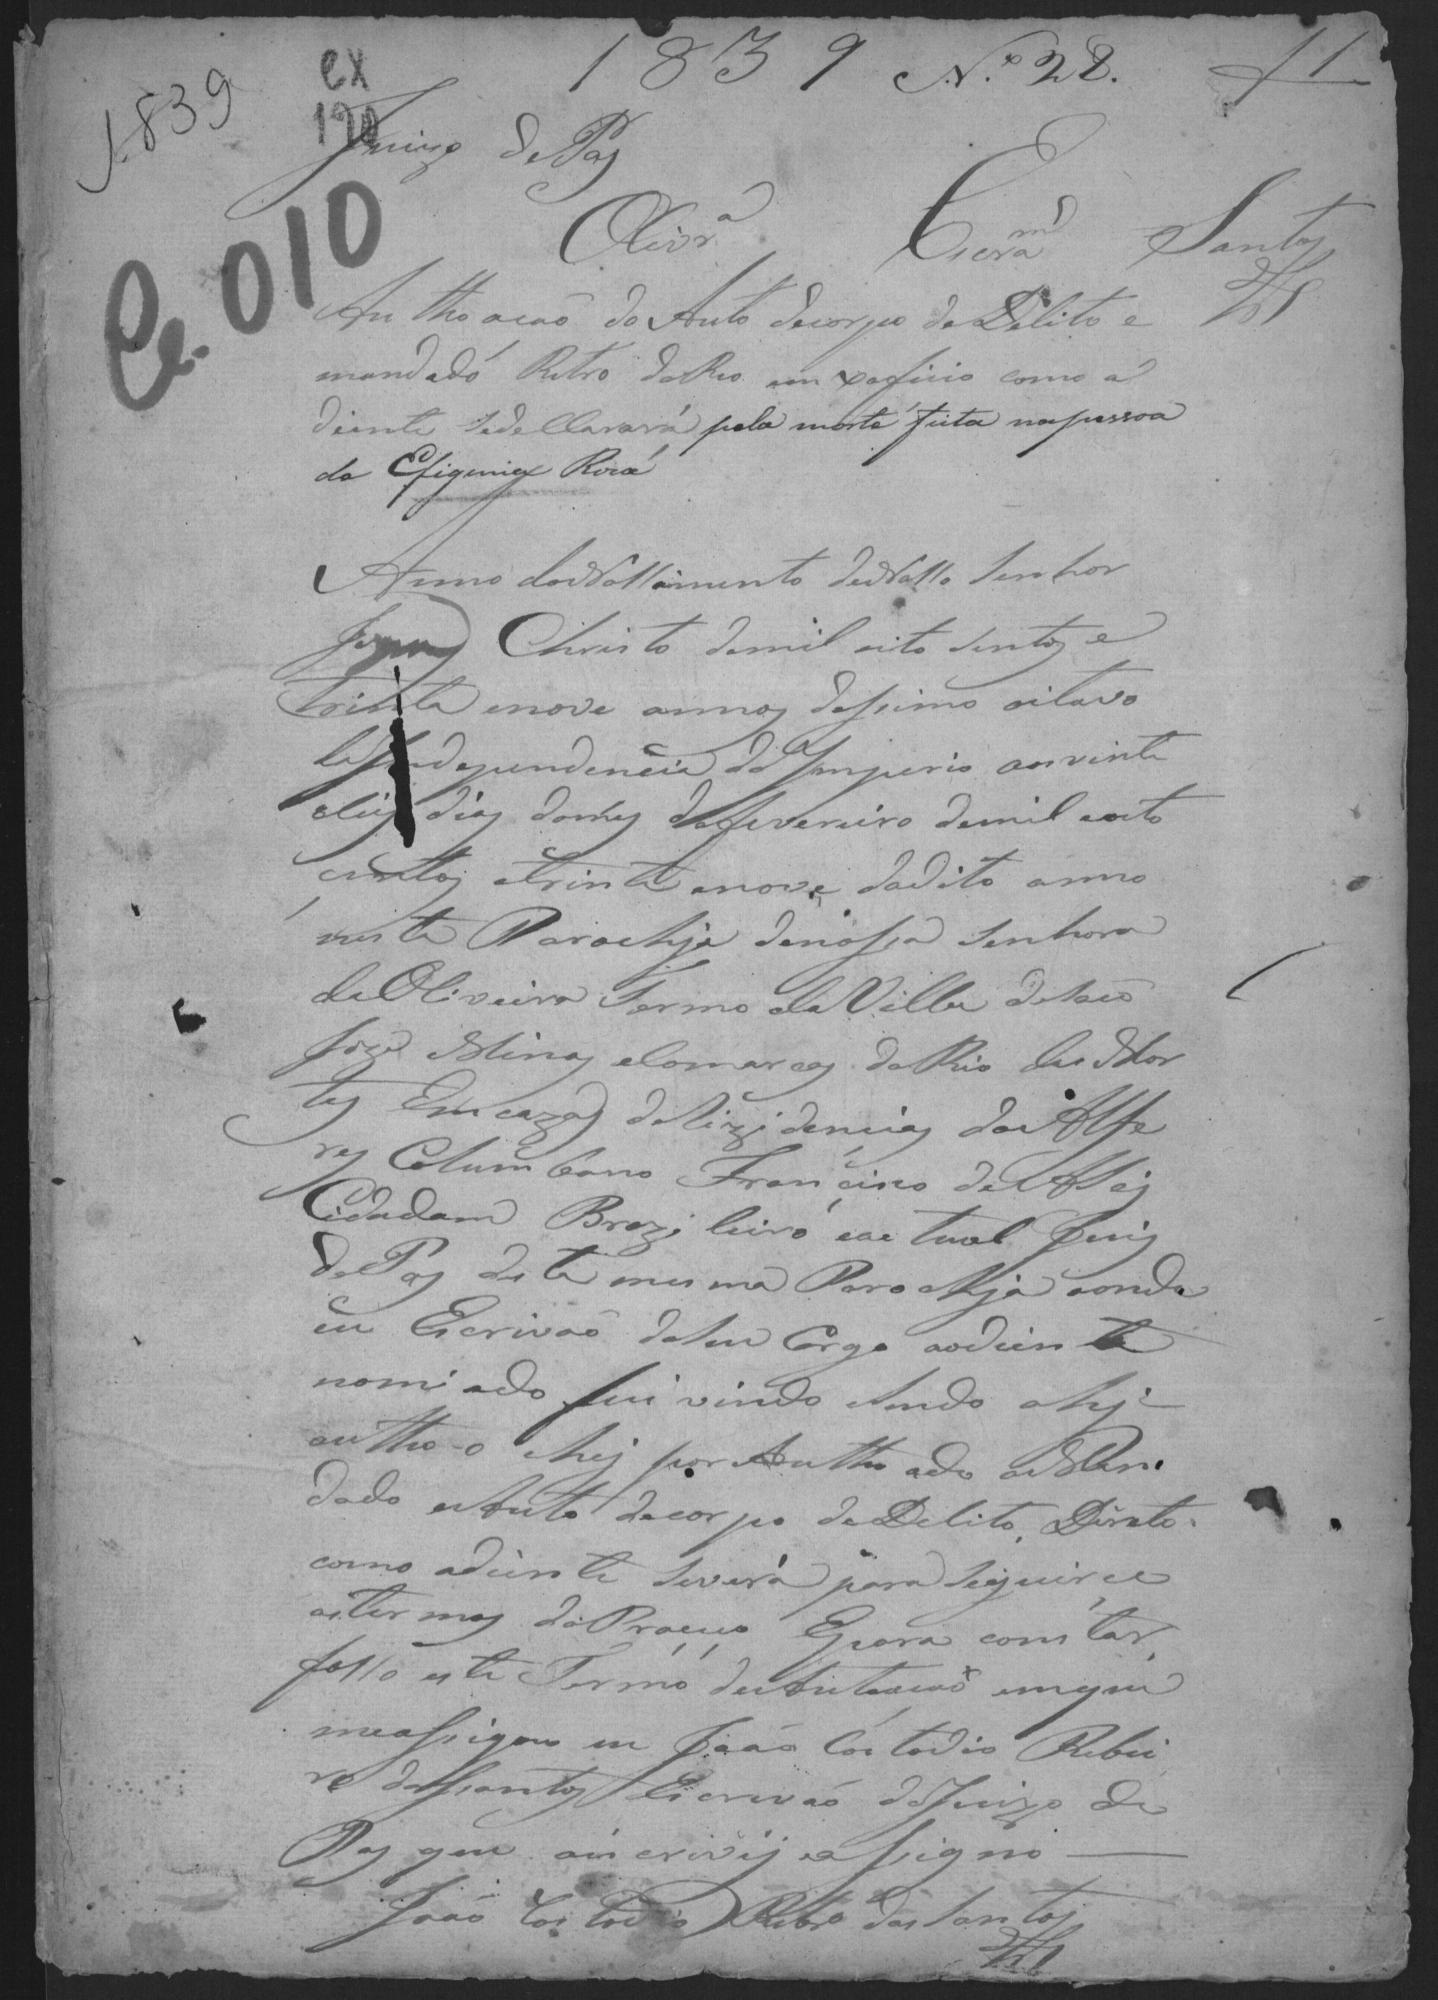 1839 Nº 28. 1
1839
ex
190
Juizo de Paz
Cx. 010
Olivrª Escram Santos
Autho acaõ do Auto decorpo de Delito e
mandado Retro do Reo em xoficio como a
diente sedecllarará pela morte feita napessoa
da Efigenia Roza
Anno do Nassimento de Nosso Senhor
Jezus Christo demil oito sentos e
trinta enove annos dessimo oitavo
da Independencia do Imperio aos vinte
dias domes defevereiro demil outo
centos etrinta enove dodito anno
nesta Parochja denossa senhora
de Oliveira Termo da Villa desaõ
Joze Minas eComarca do Rio das Mor
tes Emcazas derezidencias do Alfe
res Columbano Francisco de
Cidadam Brazileiro eactual Juis
de Paz desta mesma Parochja aonde
eu Escrivaõ deseu Cargo aodiente
nomiado fui vindo esendo ahj
autho-o ehej por Authoado oMan
dado eAuto decorpo de Delito Direto
como adiente severá para seguirce
ostermos do Proceco Epara constar
fasso este Termo deAuteacaõ emque
measigno eu Joaõ Costodio Ribei
ro dosSantos Escrivaõ doJuizo de
Paz que oescrivij eassigno
Joaõ Costodio Ribrº dos Santos